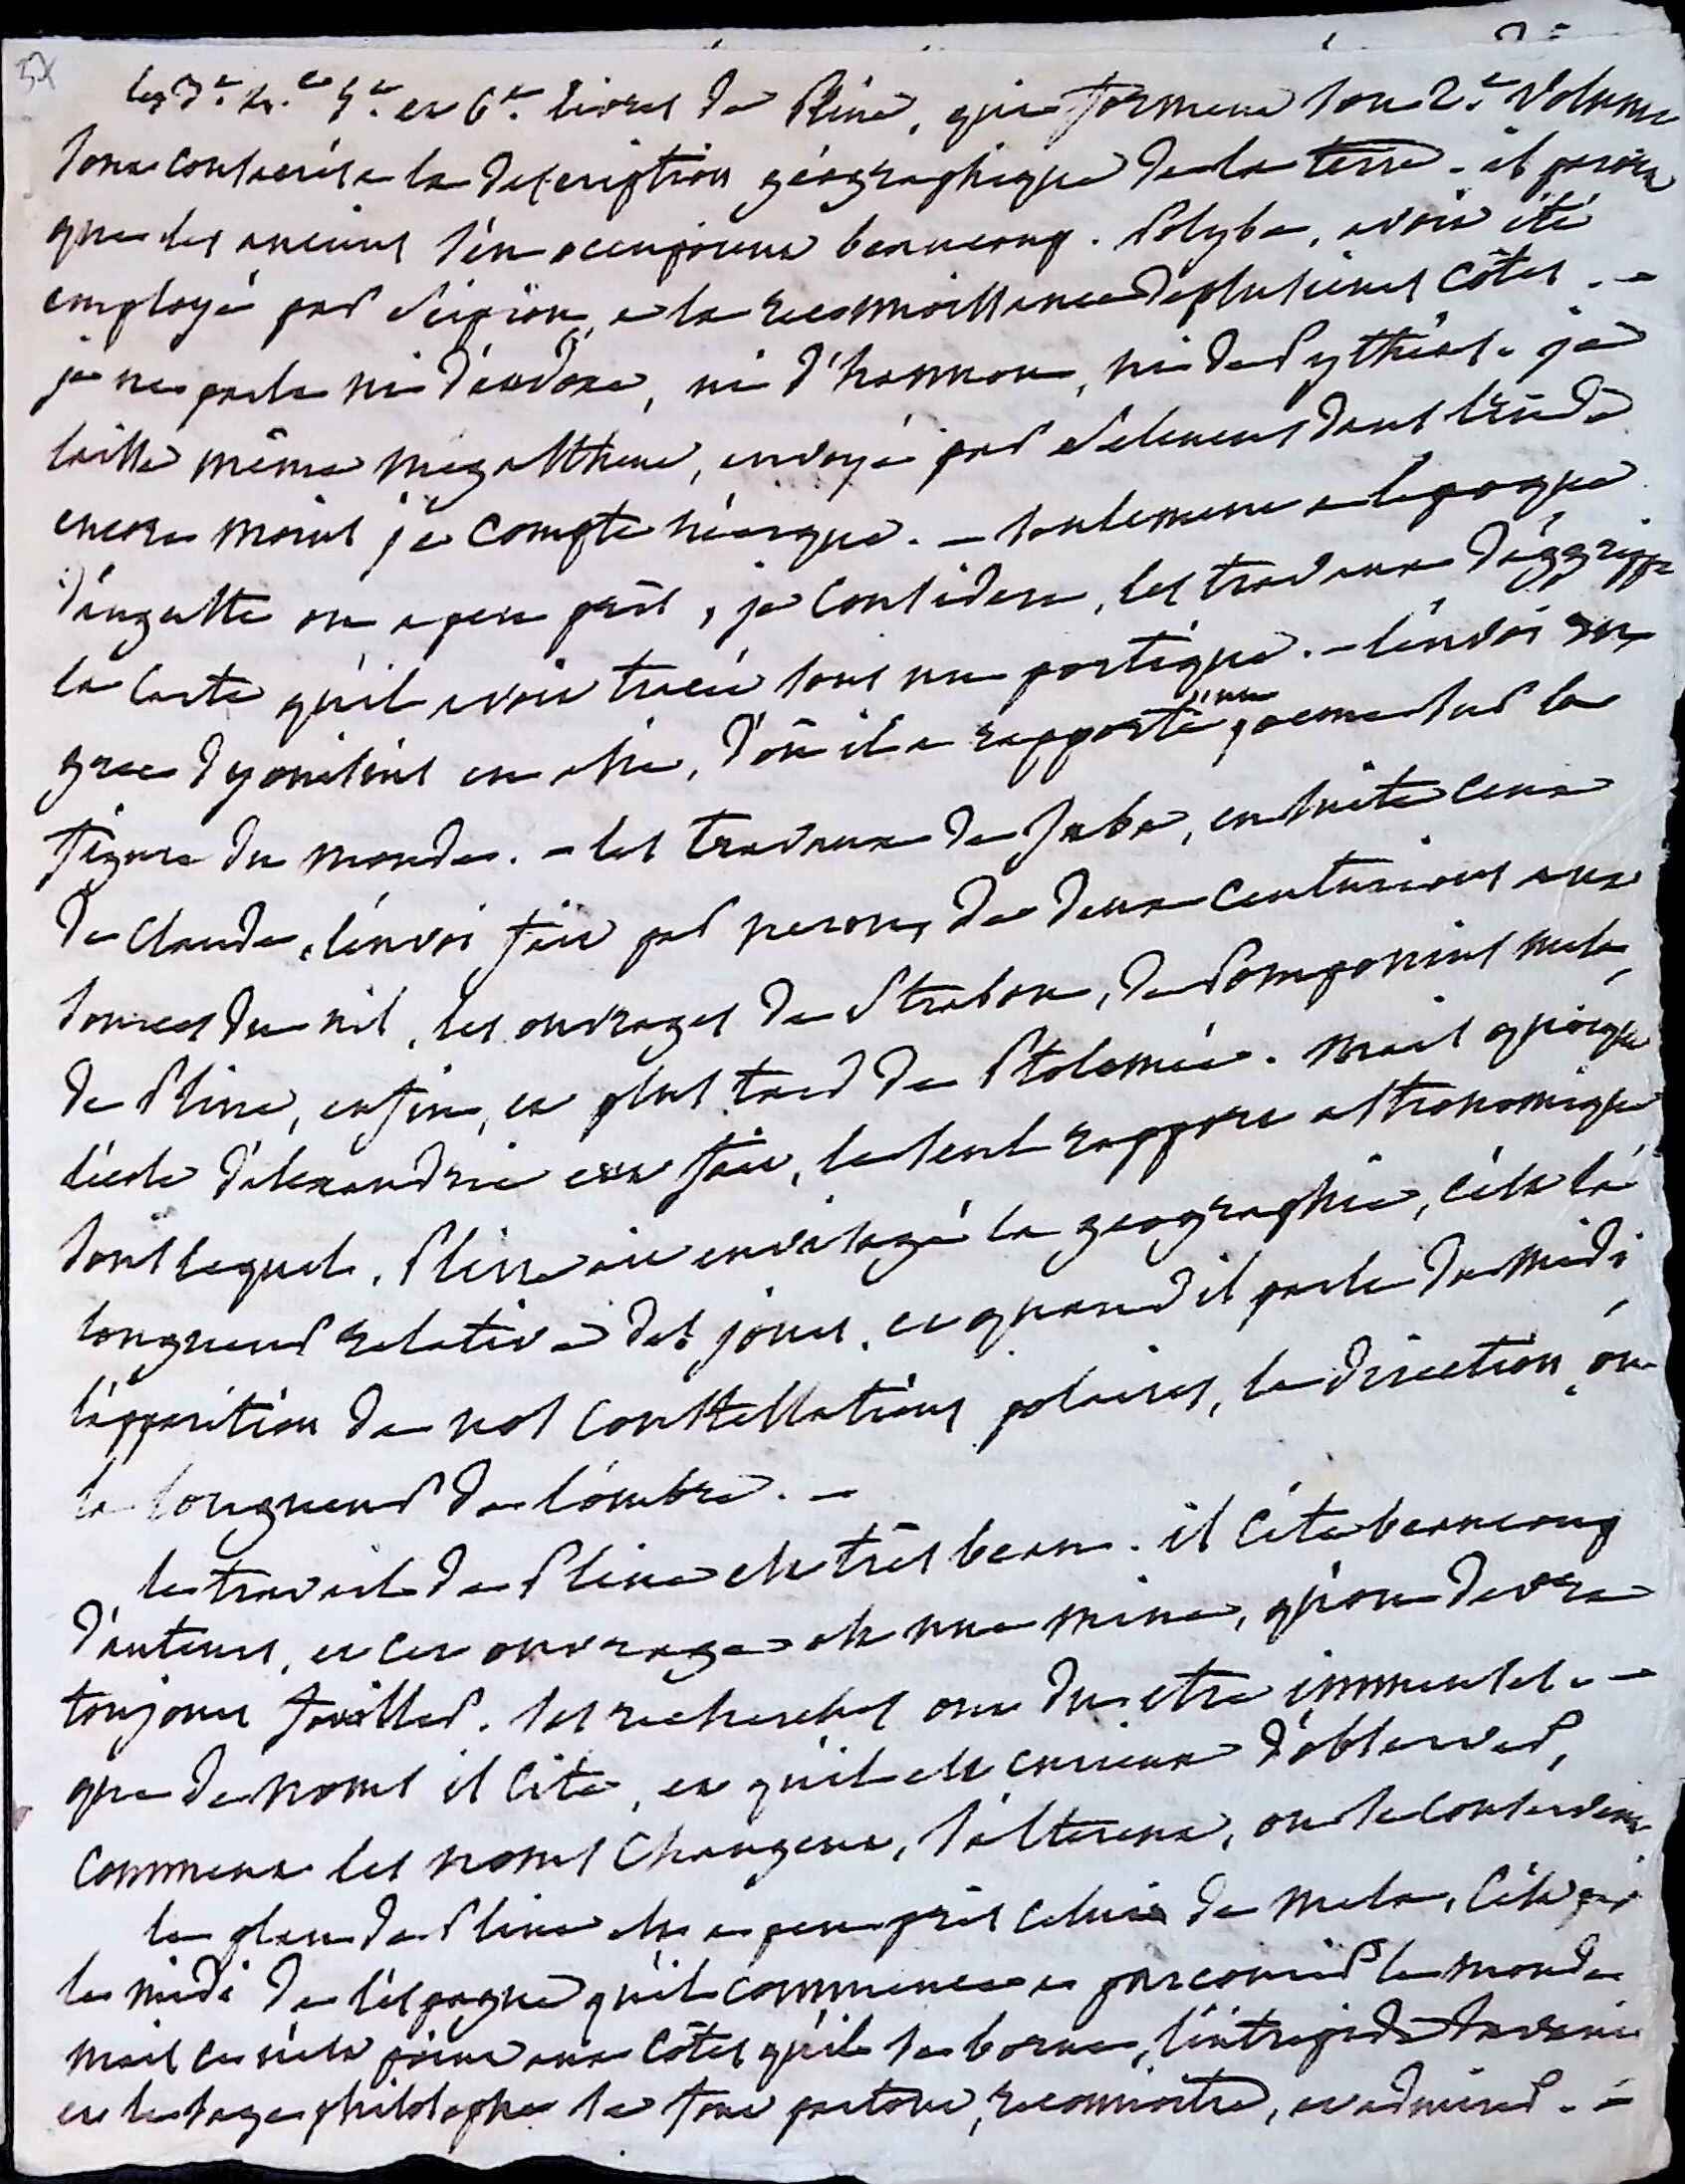 37
les 3e. 4e. 5e. et 6e. livres de Pline, qui forment son 2e. volume
sont consacrés a la description géographique de la terre. - il paroit
que les anciens s'en occupoient beaucoup. Polybe, avoit été
employé par Scipion, a la reconnoissance de plusieurs côtes. -
je ne parle ni d'eudoxe, ni d'hannon, ni de Pythéas. je
laisse même mégasthene, envoyé par Seleucus dans l'inde
encore moins je compte néarque. - seulement a l'epoque
d'auguste ou a peu près, je considere, les travaux d'aggrippa
la carte qu'il avoit tracée sous un portique. - l'envoi du
grec dyonisius en asie, d'où il a rapporté, un poeme sur la
figure du monde. - les travaux de Juba, ensuite ceux
de Claude, l'envoi fait par neron, de deux centurions aux
sources du nil, les ouvrages de Strabon, de Pomponius mela,
de Pline, enfin, et plus tard de Ptolemée. mais quoique
l'école d'alexandrie eut fait, le seul rapport astronomique
sous lequel, Pline ait envisagé la geographie, c'est la
longueur relative des jours, et quand il parle du midi,
l'apparition de nos constellations polaires, la direction, ou
la longueur de l'ombre. -
le travail de Pline est très beau. il cite beaucoup
d'auteurs, et cet ouvrage est une mine, qu'on devra
toujours fouiller. ses recherches ont du etre immenses. -
que de noms il cite, et qu'il est curieux d'observer,
comment les noms changent, s'alterent, ou se conservent.
le plan de Pline est a peu près celui de mela, c'est par
le midi de l'espagne qu'il commence a parcourir le monde
mais ce n'est point aux côtes qu'il se borne, l'intrepide savant
et le sage philosophe se font partout, reconnoitre, et admirer. -